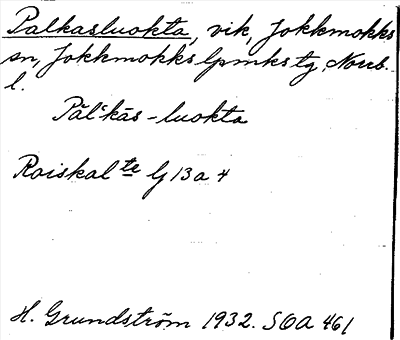 Palkasluokta, vik, Jokkmokks
sn, Jokkmokks lpmks tg, Norrb.
l.
Păl‛kās-luokta
Raiskal te lj 13 a 4
H. Grundström 1932. SOA 461